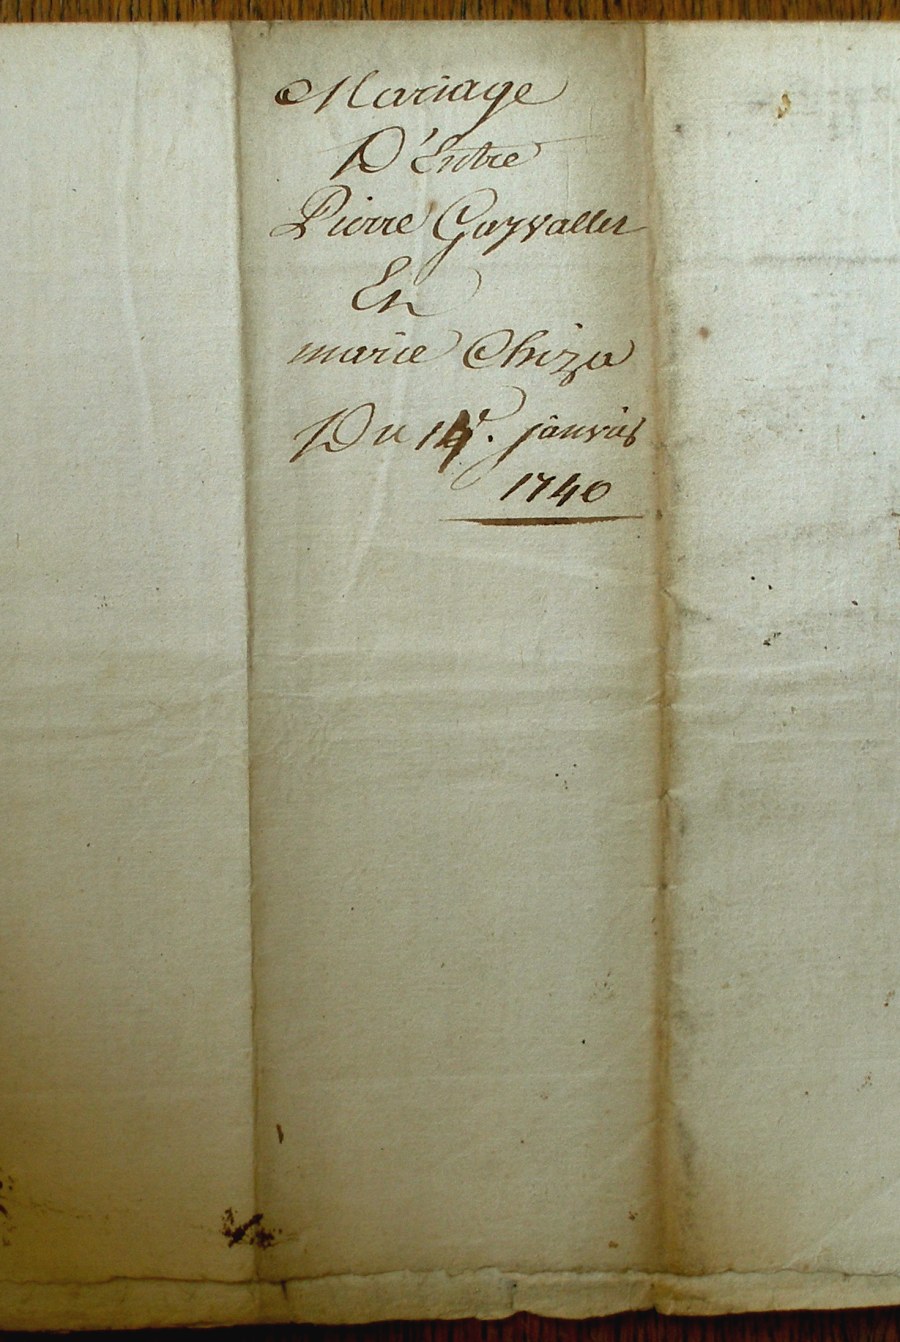 Mariage
D'Entre
Pierre Gayvallet
Et
marie Chiza
Du 14e. janvier
1740